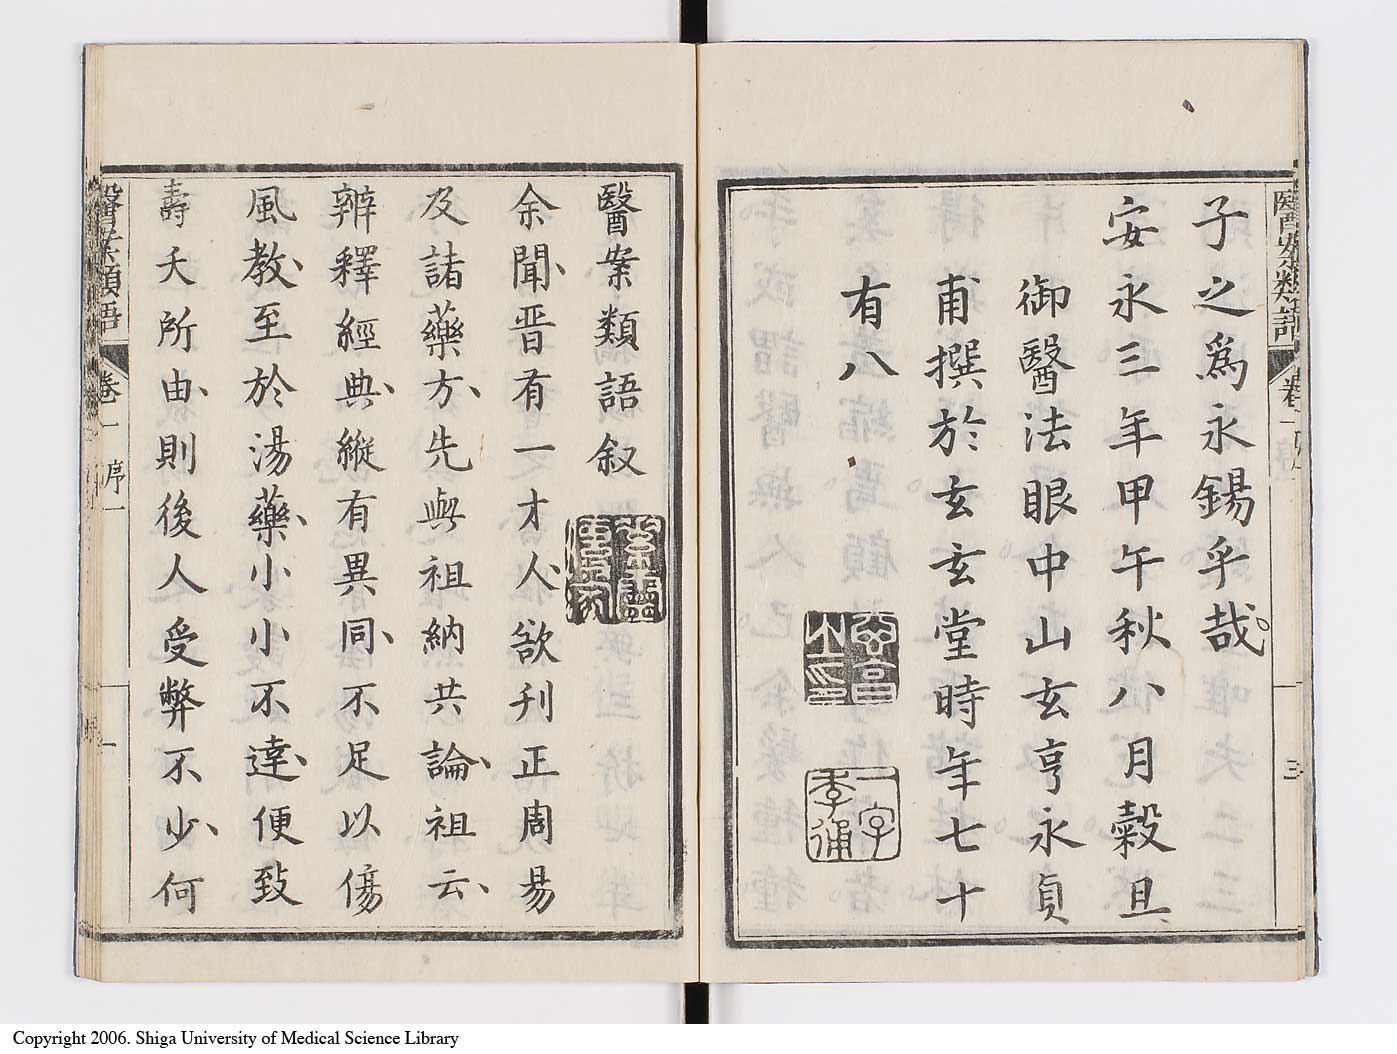 醫案類語
卷一
序
三
子之為永錫乎哉
安永三年甲午秋八月穀旦
御醫法眼中山玄亨永貞
甫撰於玄玄堂時年七十
有八
一字
季通
醫案類語叙
余聞晋有一才人欲刋正周易
及諸藥方先與祖納共論祖云
辨釋經典縱有異同不足以傷
風教至於湯藥小小不達便致
壽夭所由則後人受弊不少何
醫案類語
卷一
序一
一
Copyright 2006. Shiga University of Medical Science Library